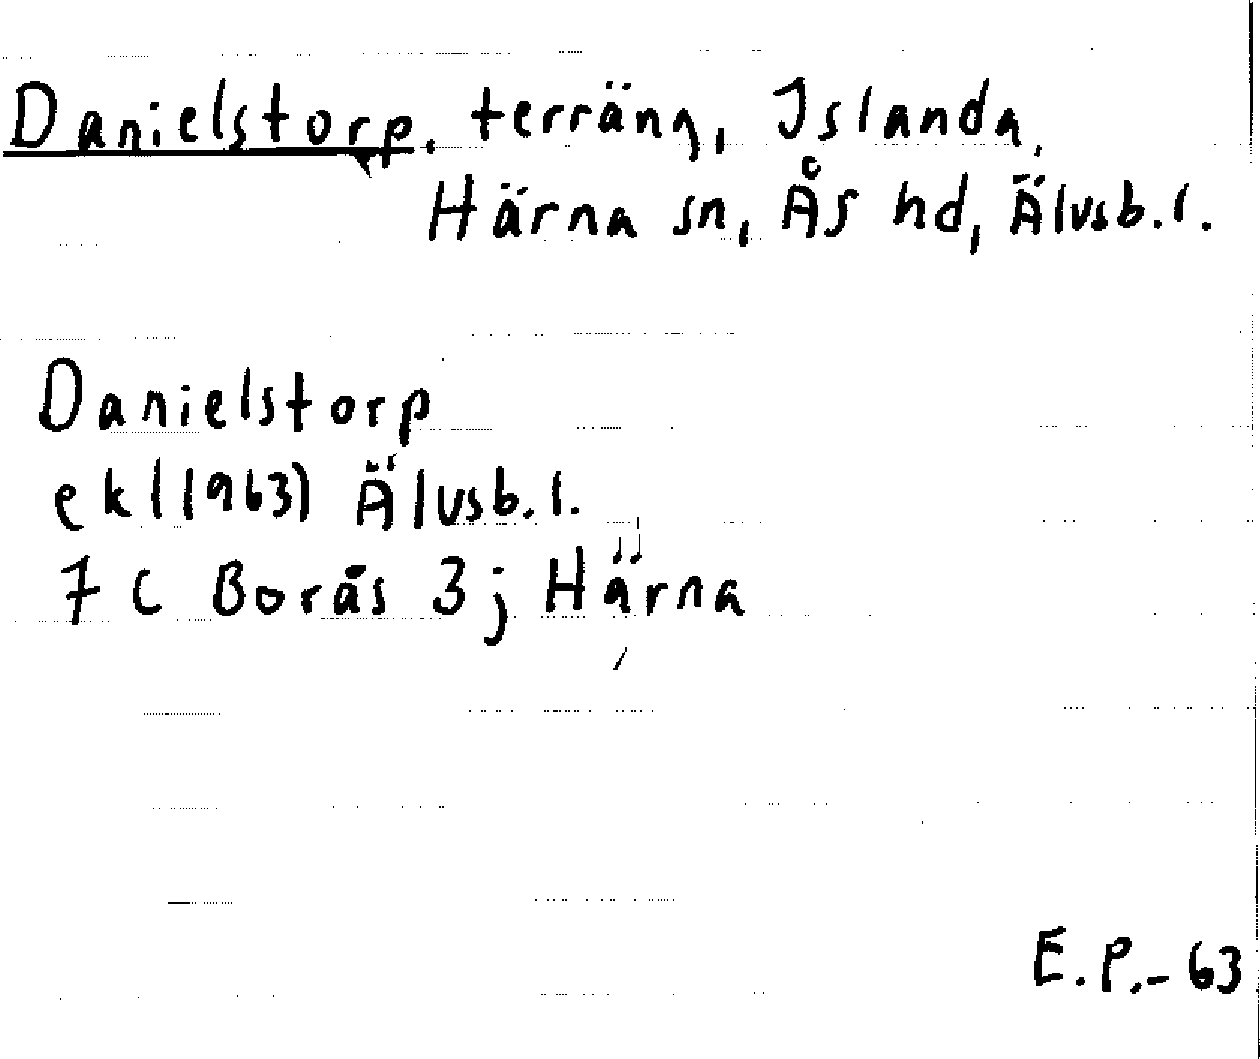 Danielstorp, terräng, Islanda,
Härna sn, Ås hd, Älvsb.l.
Danielstorp
ek (1963) Älvsb.l.
7 C Borås 3 j Härna
E.P.-63